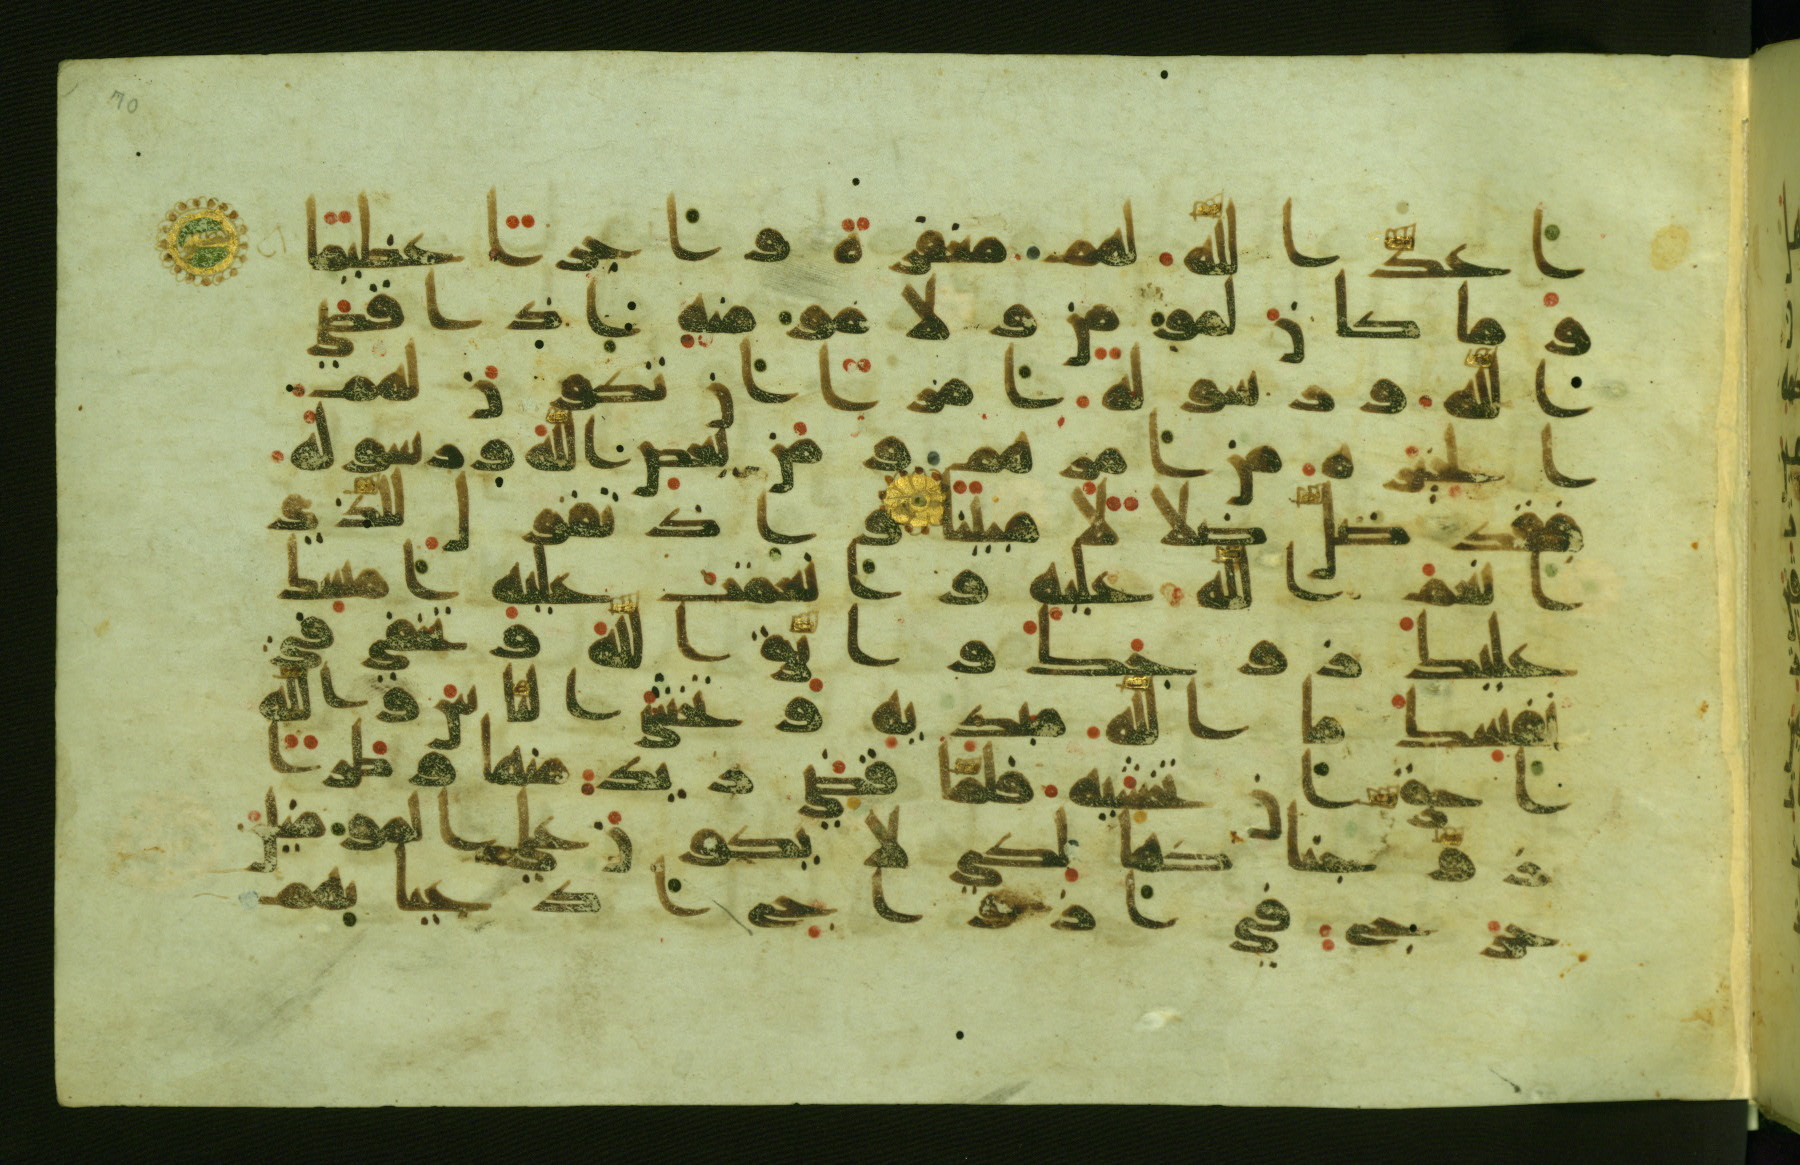 70
أعد الله لهم مغفرة وأجرا عظيما
وما كان لمؤمن ولا مؤمنة إذا قضى
الله ورسوله أمرا أن تكون لهم
الخيرة من أمرهم ومن يعص الله ورسوله
فقد ضل ضلالا مبينا وإذ تقول للذي
أنعم الله عليه وأنعمت عليه أمسك
عليك زوجك واتق الله وتخفي في
نفسك ما الله مبديه وتخشى الناس والله
أحق أن تخشيه فلما قضى زيد منها وطرا
زوجناكها لكي لا يكون على المؤمنين
حرج في أزواج أدعيائهم